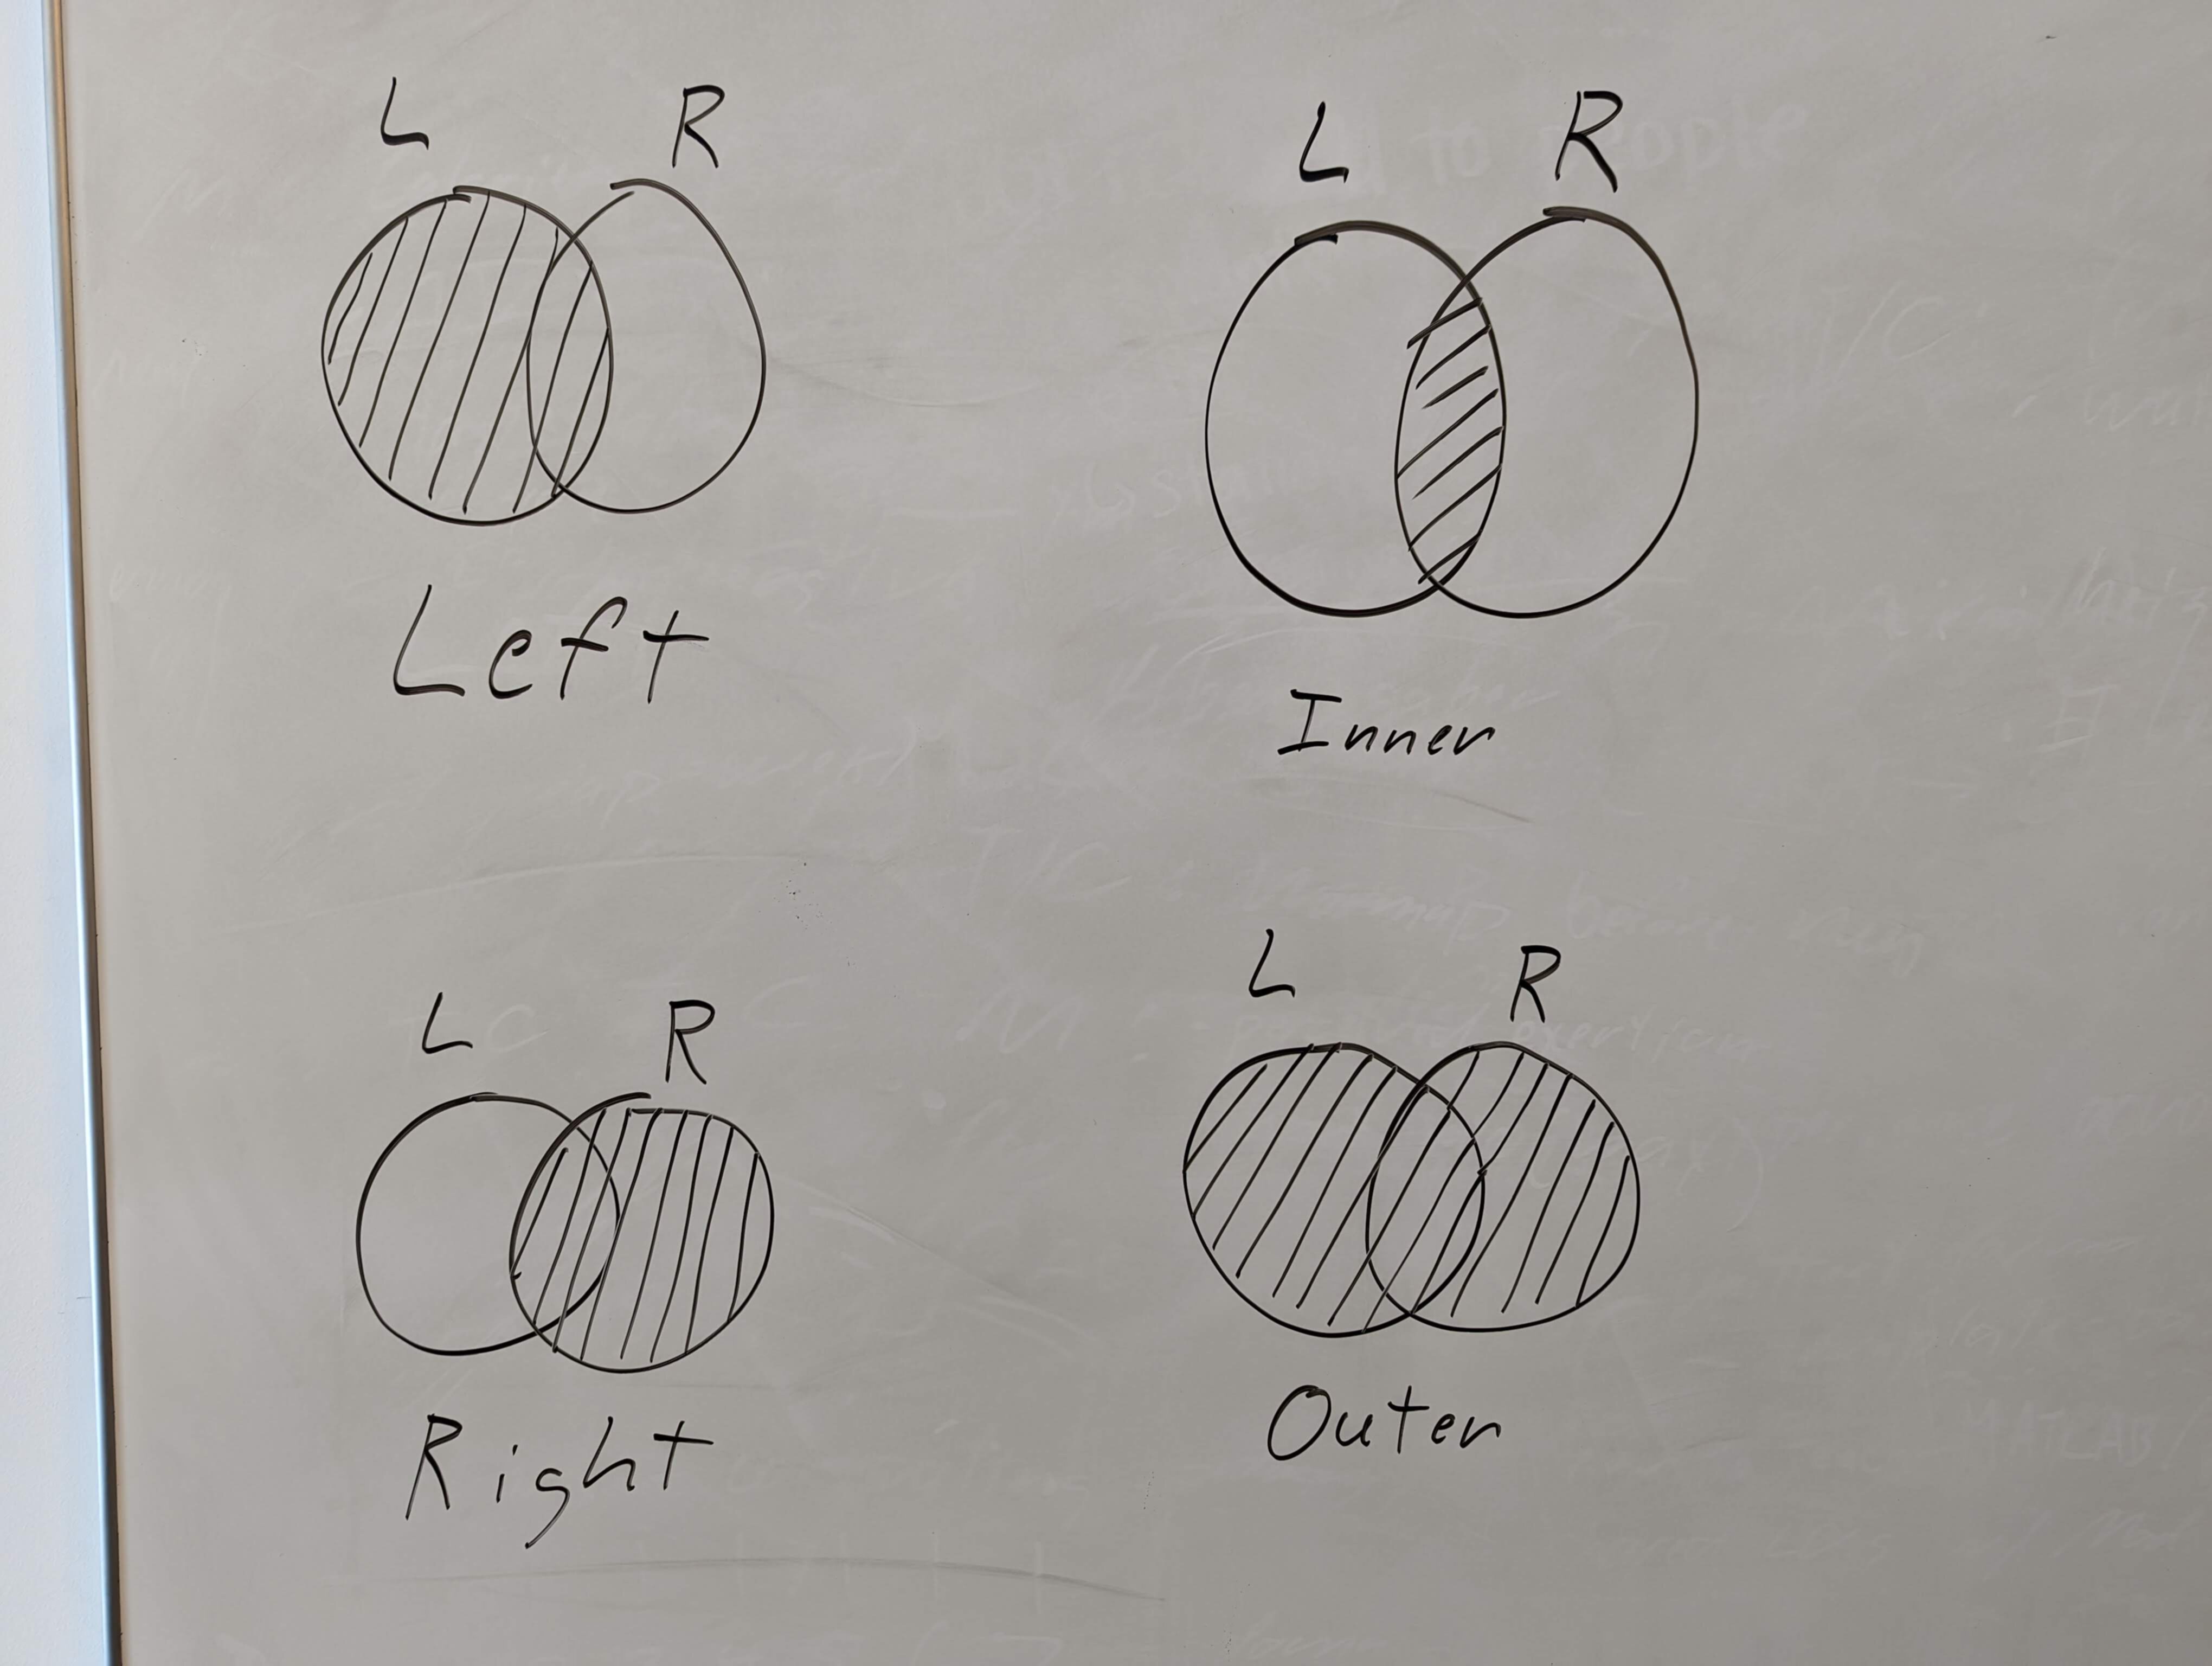 L R
Left
L R
Inner
L R
Right
L R
Outer